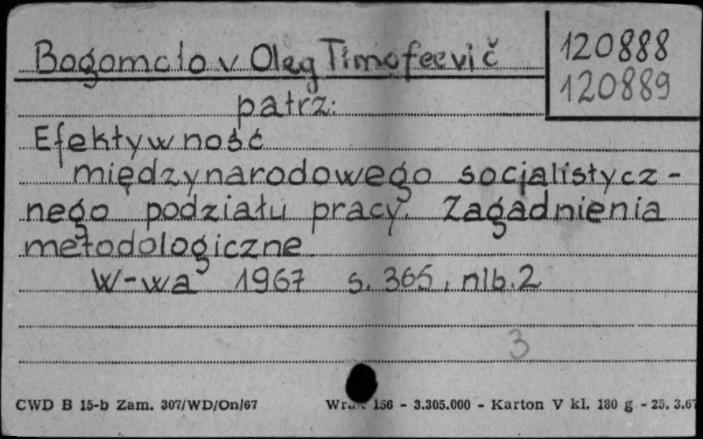 Bogomolov Oleg Timofeevič
120888
120889
patrz:
Efektywność
międzynarodowego socjalistycz-
nego podziału pracy. Zagadnienia
metodologiczne
W-wa 1967 s. 365, nlb. 2
3
CWD B 15-b Zam. 307/WD/On/67 156 - 3.305.000 - Karton V kl. 180 g - 25. 3.67